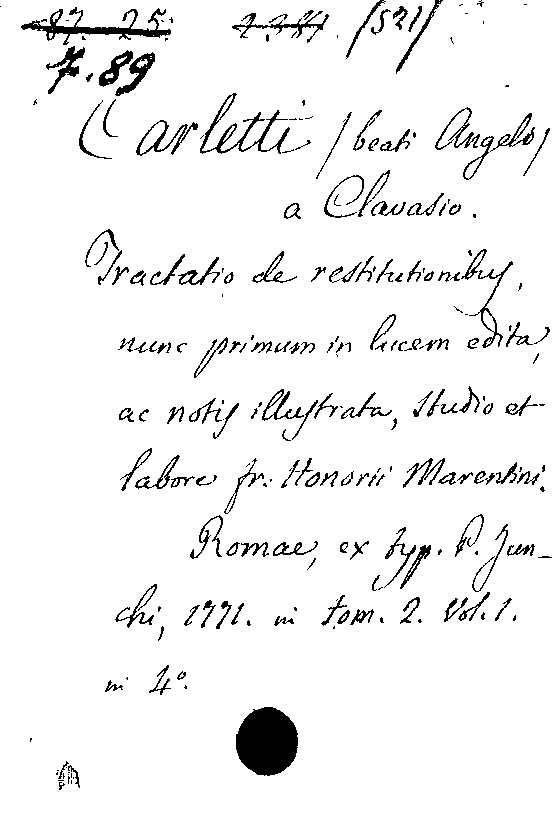 87. 25. 2.384 /521/
7.89
Carletti /beati Angelo/
a Clavasio.
Tractatio de restitutionibus,
nunc primum in lucem edita,
ac notis illustrata, studio et
labore fr. Honorii Marentini.
Romae, ex typ. P. Jun-
chi, 1771. in tom. 2. Vol. 1.
in 4º.